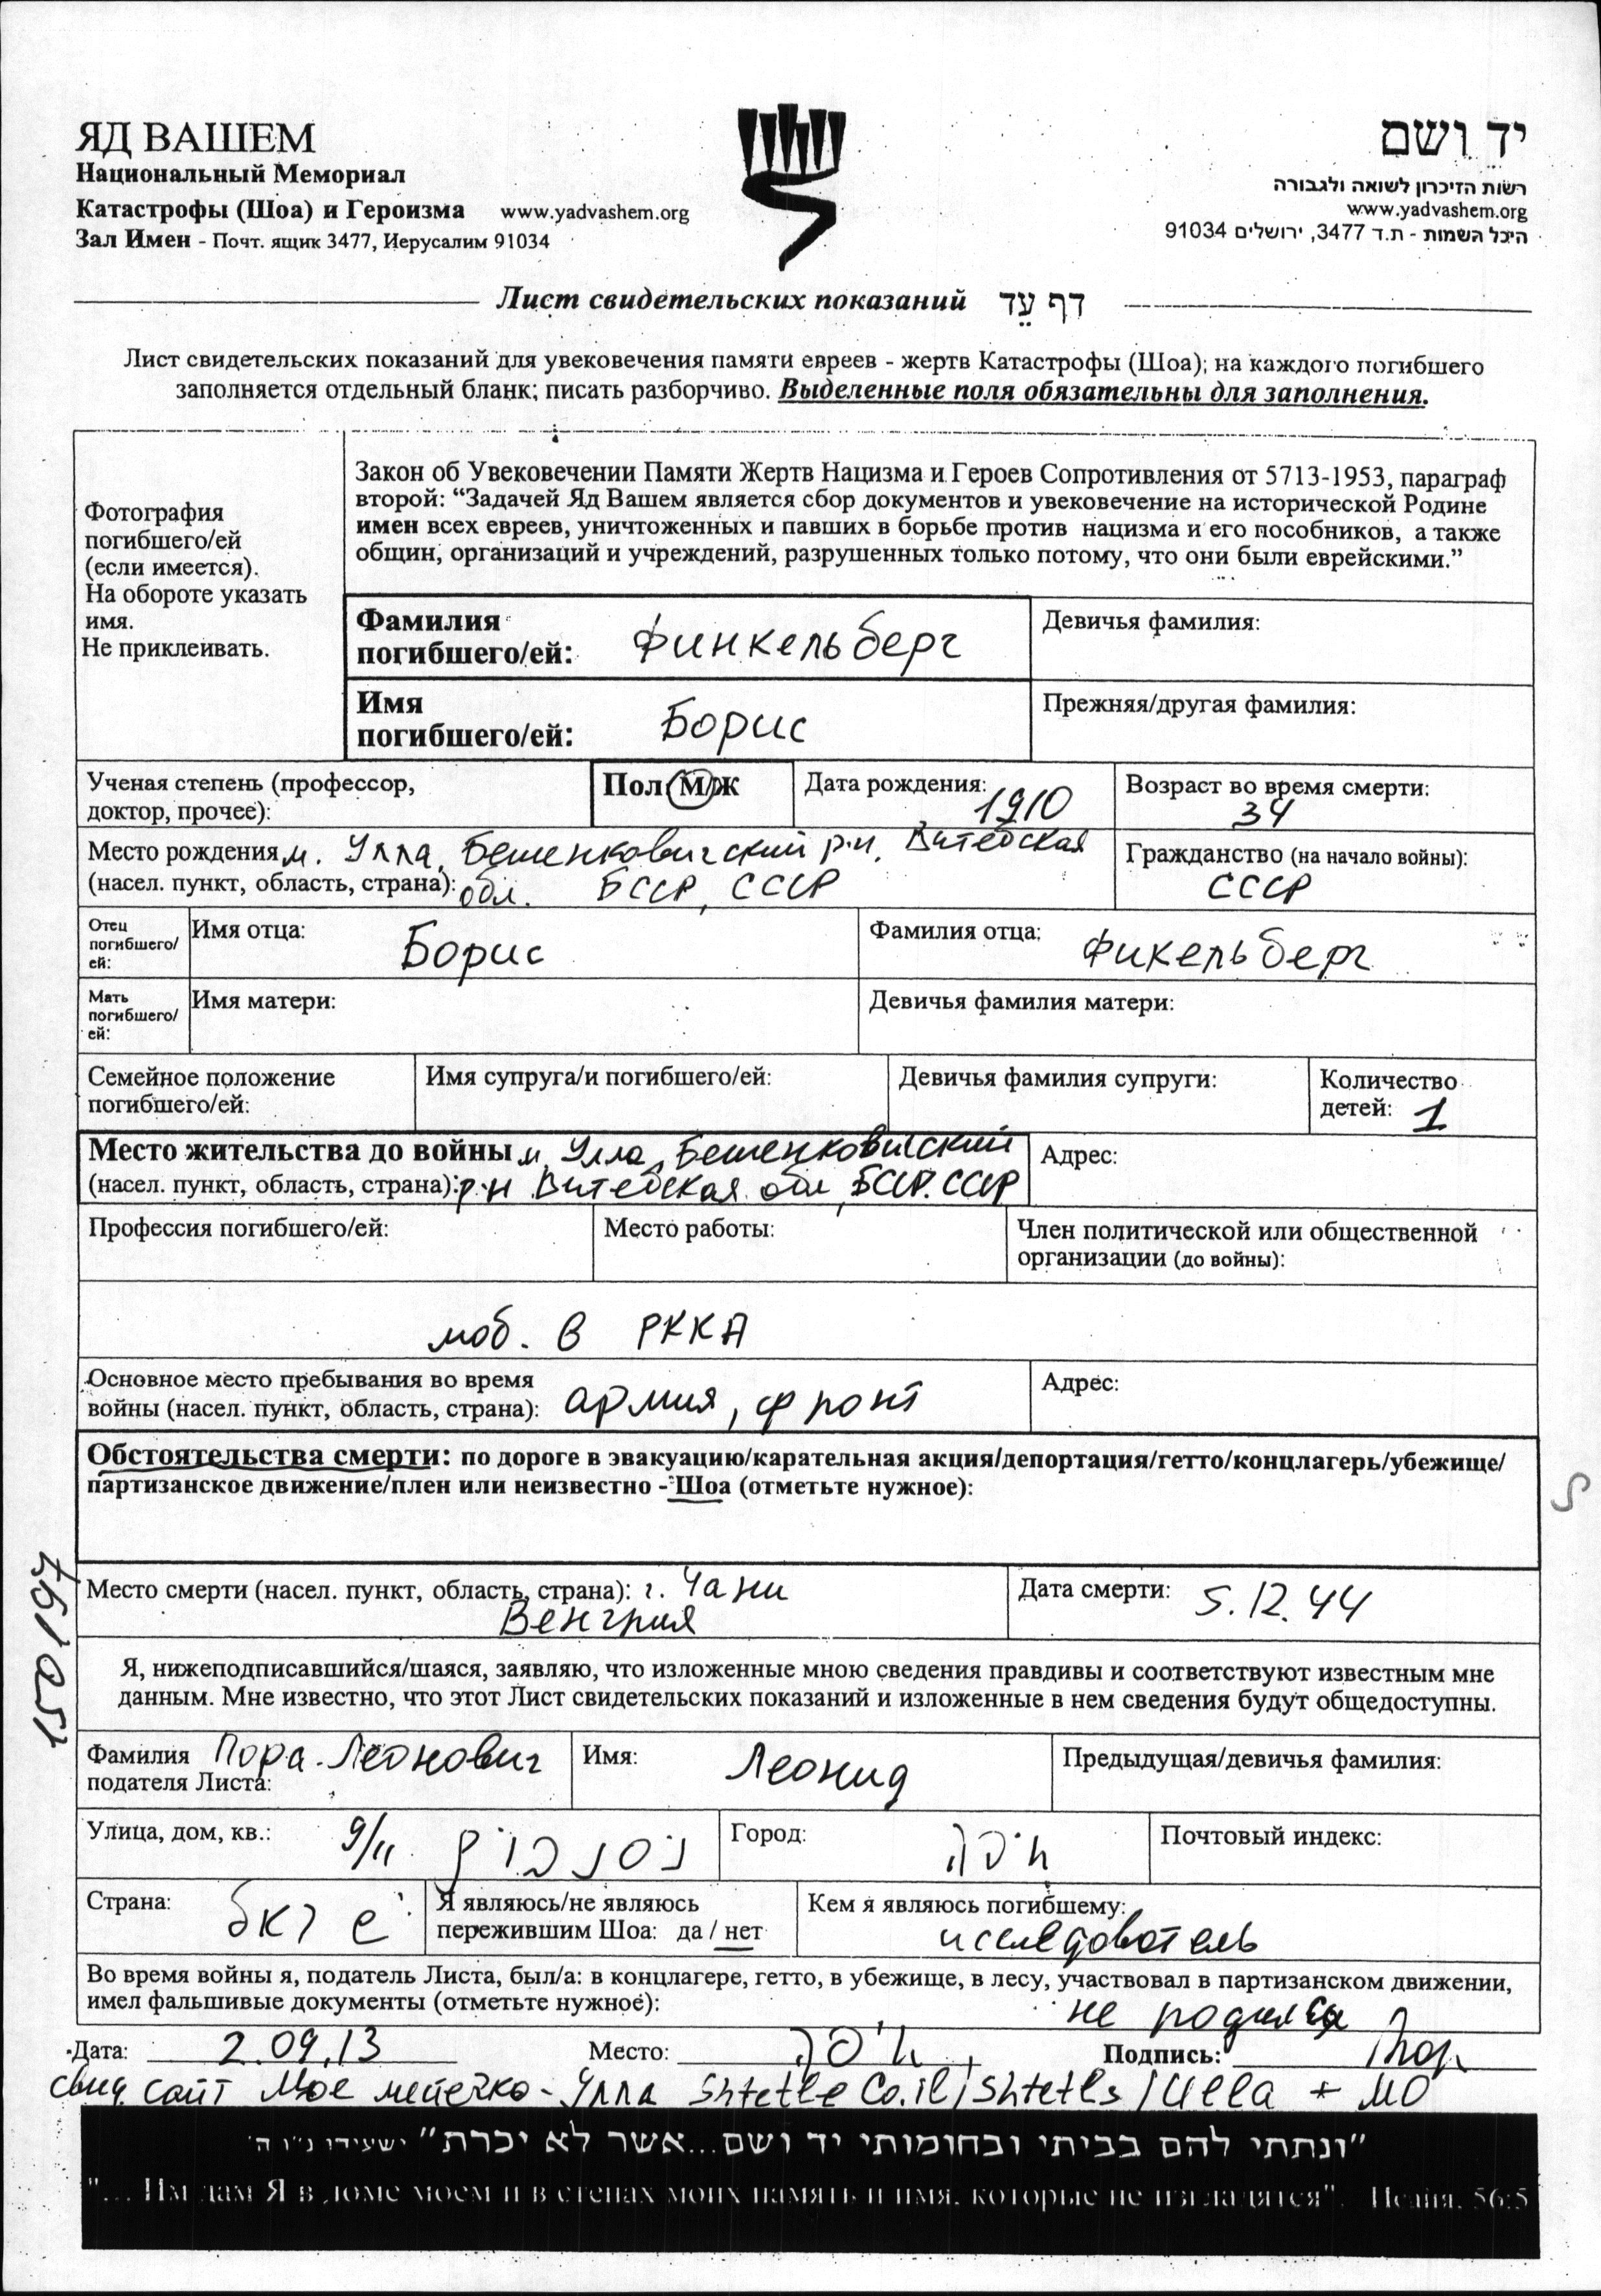 ЯД ВАШЕМ
Национальный Мемориал
Катастрофы (Шоа) и Героизма www.yadvashem.org
Зал Имен - Почт. ящик 3477, Иерусалим 91034
יד ושם
רשות הזיכרון לשואה ולגבורה
www.yadvashem.org
היכל השמות - ת.ד 3477, ירושלים 91034
Лист свидетельских показаний דף עֵד
Лист свидетельских показаний для увековечения памяти евреев - жертв Катастрофы (Шоа); на каждого погибшего
заполняется отдельный бланк; писать разборчиво. Выделенные поля обязательны для заполнения.
Фотография
погибшего/ей
(если имеется).
На обороте указать
имя.
Не приклеивать.
Закон об Увековечении Памяти Жертв Нацизма и Героев Сопротивления от 5713-1953, параграф
второй: “Задачей Яд Вашем является сбор документов и увековечение на исторической Родине
имен всех евреев, уничтоженных и павших в борьбе против нацизма и его пособников, а также
общин, организаций и учреждений, разрушенных только потому, что они были еврейскими.”
Фамилия
погибшего/ей: Финкельберг
Девичья фамилия:
Имя
погибшего/ей: Борис
Прежняя/другая фамилия:
Ученая степень (профессор,
доктор, прочее):
Пол М/Ж
Дата рождения: 1910
Возраст во время смерти:
34
Место рождения м. Улла, Бешенковичский р-н, Витебская
(насел. пункт, область, страна): обл. БССР, СССР
Гражданство (на начало войны):
СССР
Отец
погибшего/
ей:
Имя отца: Борис
Фамилия отца: Фикельберг
Мать
погибшего/
ей:
Имя матери:
Девичья фамилия матери:
Семейное положение
погибшего/ей:
Имя супруга/и погибшего/ей:
Девичья фамилия супруги:
Количество
детей: 1
Место жительства до войны м. Улла, Бешенковичский
(насел. пункт, область, страна): р-н Витебская обл, БССР. СССР
Адрес:
Профессия погибшего/ей:
Место работы:
Член политической или общественной
организации (до войны):
моб. в РККА
Основное место пребывания во время
войны (насел. пункт, область, страна): армия, фронт
Адрес:
Обстоятельства смерти: по дороге в эвакуацию/карательная акция/депортация/гетто/концлагерь/убежище/
партизанское движение/плен или неизвестно - Шоа (отметьте нужное):
Место смерти (насел. пункт, область, страна): г. Чани
Венгрия
Дата смерти: 5.12.44
Я, нижеподписавшийся/шаяся, заявляю, что изложенные мною сведения правдивы и соответствуют известным мне
данным. Мне известно, что этот Лист свидетельских показаний и изложенные в нем сведения будут общедоступны.
Фамилия Пора-Леонович
подателя Листа:
Имя: Леонид
Предыдущая/девичья фамилия:
Улица, дом, кв.: 9/11
Город: חיפה
Почтовый индекс:
Страна: ישראל
Я являюсь/не являюсь
пережившим Шоа: да / нет
Кем я являюсь погибшему:
исследователь
Во время войны я, податель Листа, был/а: в концлагере, гетто, в убежище, в лесу, участвовал в партизанском движении,
имел фальшивые документы (отметьте нужное): не родился
Дата: 2.09.13 Место: חיפה Подпись:
свид. сайт Мое местечко - Улла Shtetle Co.il/Shtetls/Ulla + МО
”ונתתי להם בביתי ובחומותי יד ושם...אשר לא יכרת“ ישעיהו נ״ו ה׳
"... Им дам Я в доме моем и в стенах моих память и имя, которые не изгладятся". Исайя, 56:5